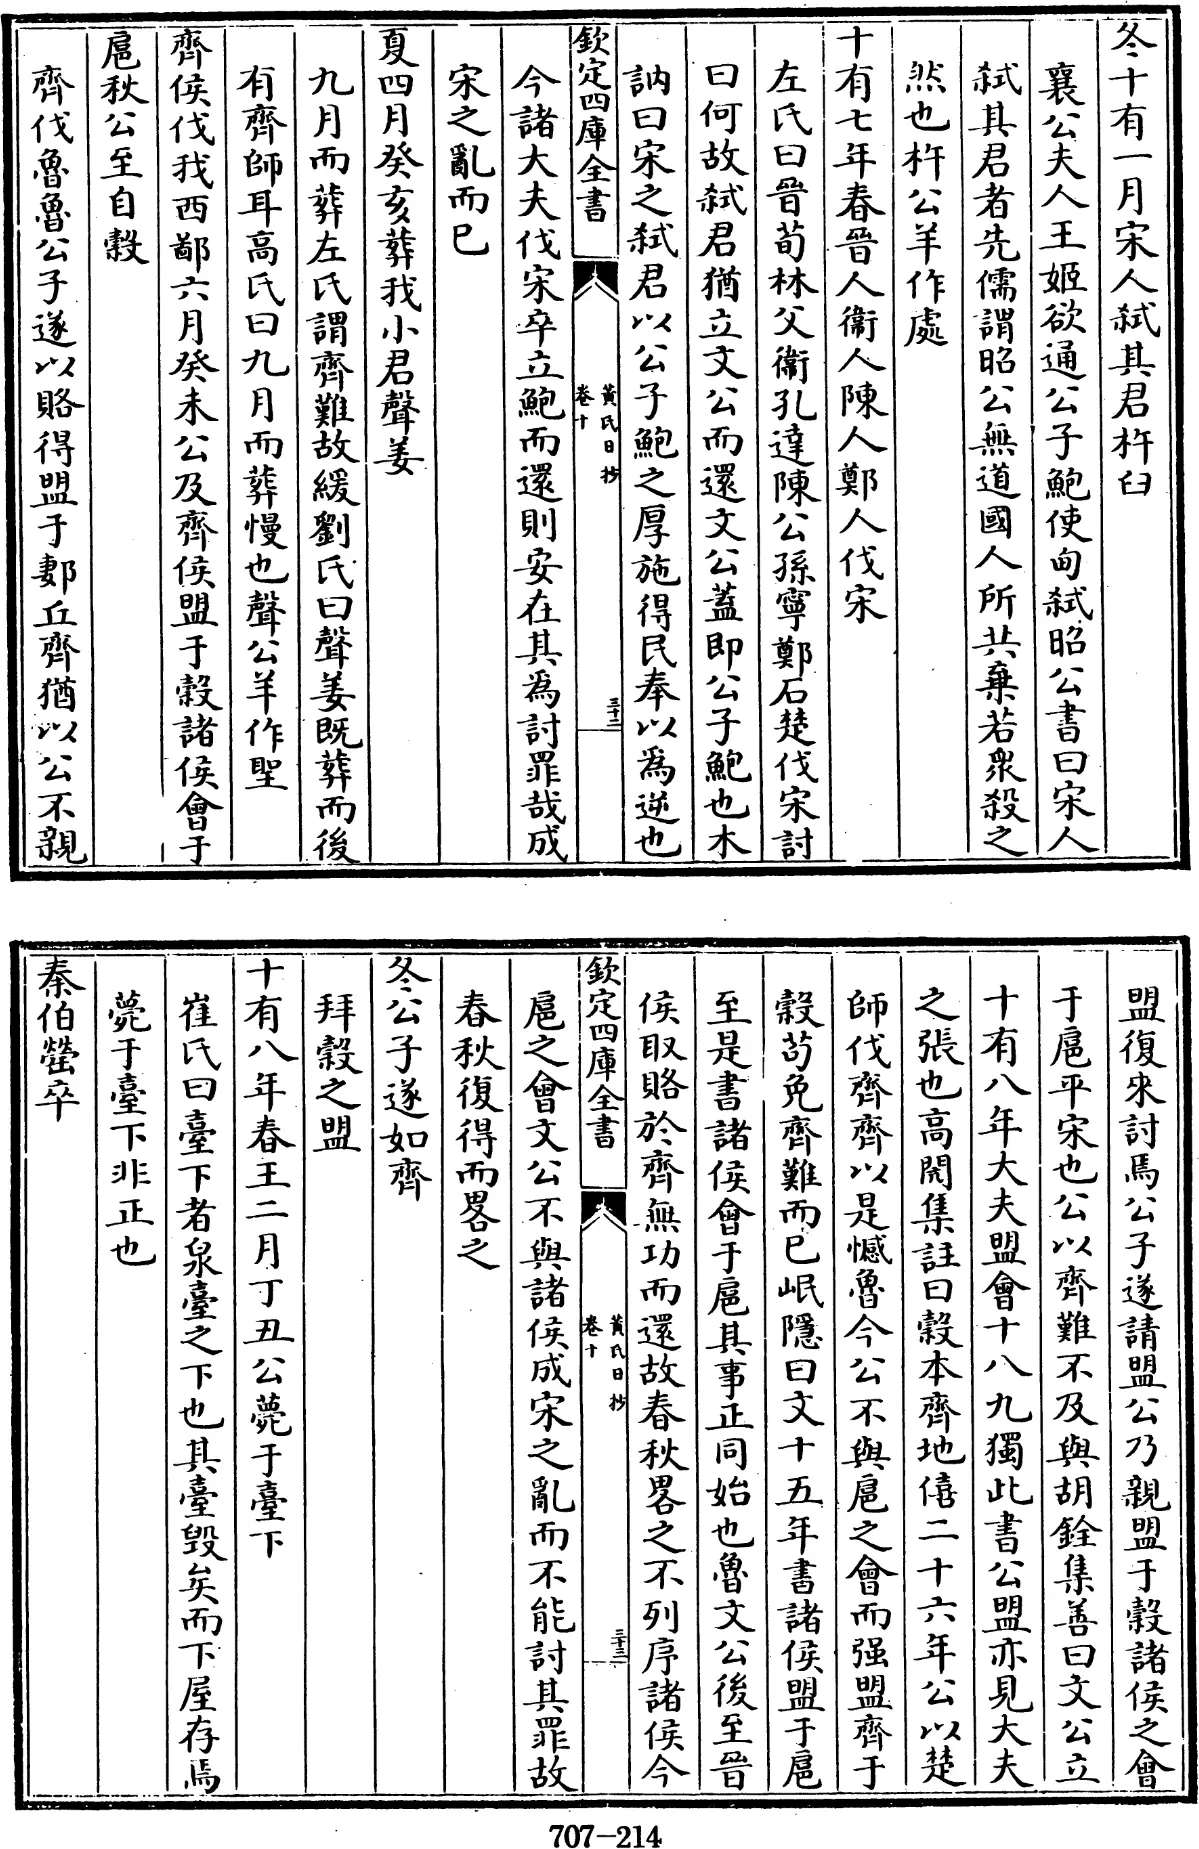 冬十有一月宋人弑其君杵臼
襄公夫人王姬欲通公子鮑使甸弑昭公書曰宋人
弑其君者先儒謂昭公無道國人所共棄若衆殺之
然也杵公羊作處
十有七年春晉人衛人陳人鄭人伐宋
左氏曰晉荀林父衛孔達陳公孫寧鄭石楚伐宋討
曰何故弑君猶立文公而還文公蓋即公子鮑也木
訥曰宋之弑君以公子鮑之厚施得民奉以為逆也
欽定四庫全書
黃氏日抄
卷十
三十二
今諸大夫伐宋卒立鮑而還則安在其為討罪哉成
宋之亂而已
夏四月癸亥葬我小君聲姜
九月而葬左氏謂齊難故緩劉氏曰聲姜既葬而後
有齊師耳高氏曰九月而葬慢也聲公羊作聖
齊侯伐我西鄙六月癸未公及齊侯盟于穀諸侯會于
扈秋公至自穀
齊伐魯魯公子遂以賂得盟于郪丘齊猶以公不親
盟復來討焉公子遂請盟公乃親盟于穀諸侯之會
于扈平宋也公以齊難不及與胡銓集善曰文公立
十有八年大夫盟會十八九獨此書公盟亦見大夫
之張也高閌集註曰穀本齊地僖二十六年公以楚
師伐齊齊以是憾魯今公不與扈之會而强盟齊于
穀苟免齊難而已岷隱曰文十五年書諸侯盟于扈
至是書諸侯會于扈其事正同始也魯文公後至晉
侯取賂於齊無功而還故春秋畧之不列序諸侯今
欽定四庫全書
黃氏日抄
卷十
三十三
扈之會文公不與諸侯成宋之亂而不能討其罪故
春秋復得而畧之
冬公子遂如齊
拜穀之盟
十有八年春王二月丁丑公薨于臺下
崔氏曰臺下者泉臺之下也其臺毁矣而下屋存焉
薨于臺下非正也
秦伯罃卒
707-214